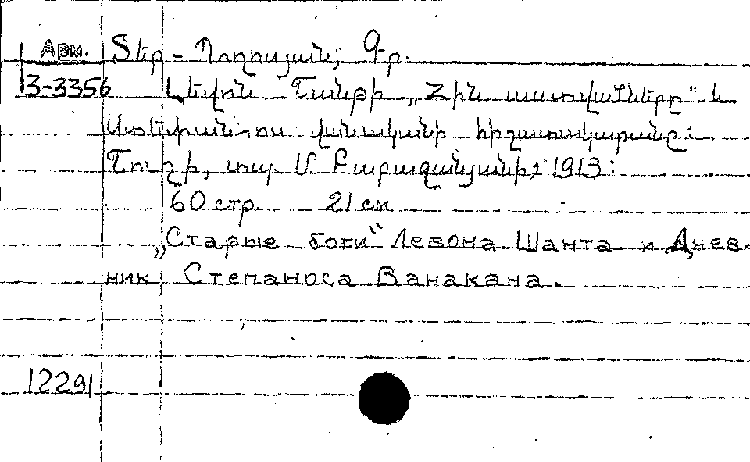 Арм. Տեր-Պողոսյան, Գր.
3-3356 Լեվոն Շանթի „Հին աստվածները“ և
Ստեփանոս վանականի հիշատակարանը:
Շուշի, տպ. Մ.
1913:
60 стр. 21 см
„Старые боги“ Левона Шанта и Днев-
ник Степаноса Ванакана.
12291